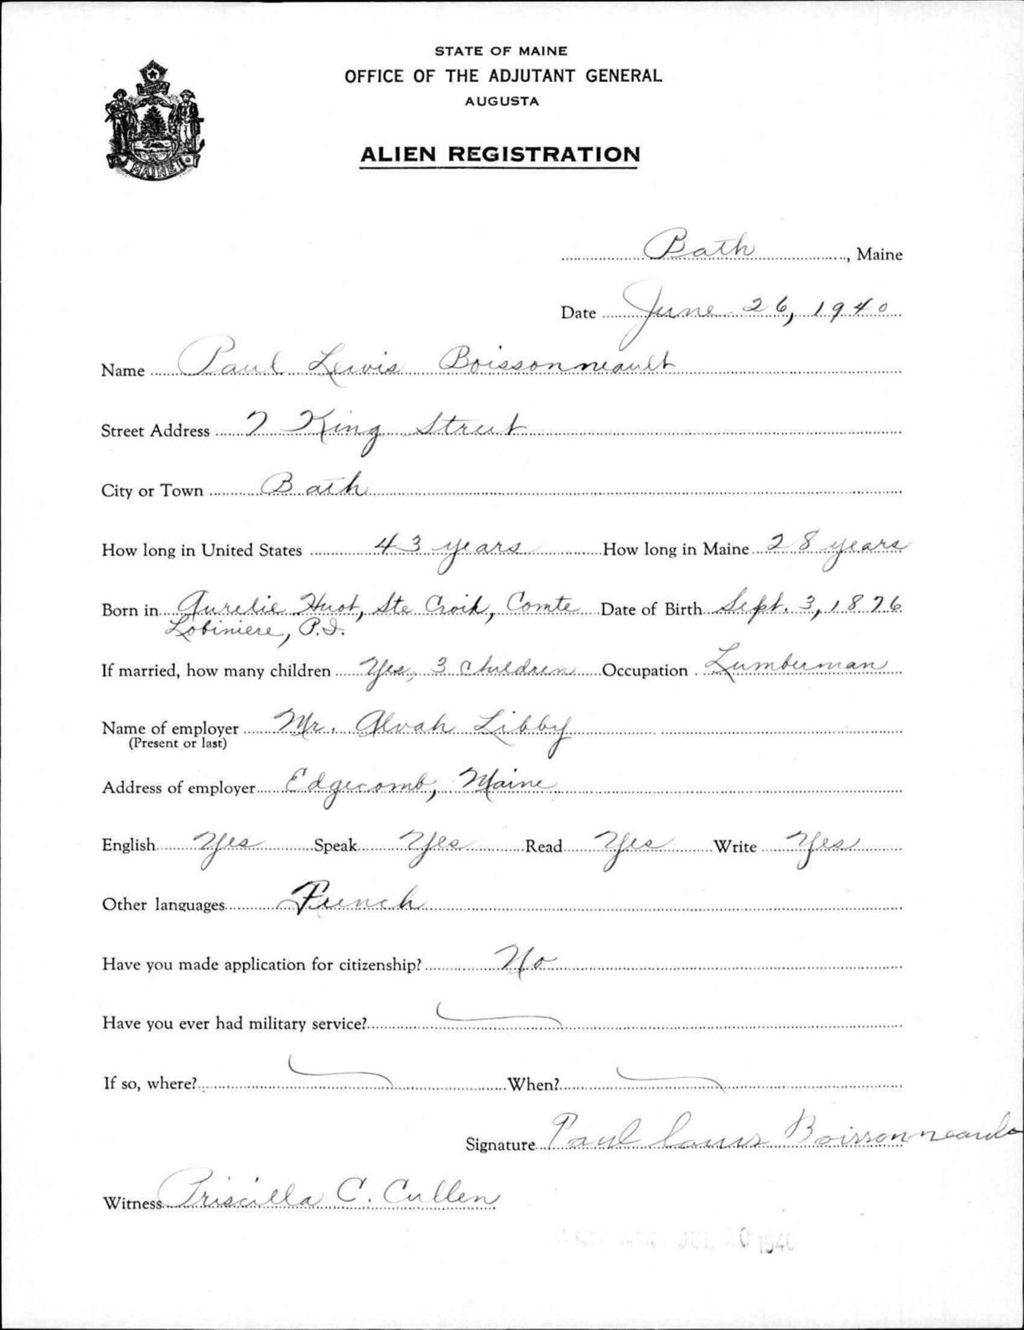 STATE OF MAINE
OFFICE OF THE ADJUTANT GENERAL
AUGUSTA
ALIEN REGISTRATION
MAINE
Bath, Maine
Date June 26, 1940
Name Paul Lewis Boissonneault
Street Address 7 King Street
City or Town Bath
How long in United States 43 years How long in Maine 28 years
Born in Aurelie Huot, Ste Croik, Comte Date of Birth Sept. 3, 1876
Lobiniere, P.
If married, how many children Yes, 3 children Occupation Lumberman
Name of employer Mr. Alvah Libby
(Present or last)
Address of employer Edgecomb, Maine
English Yes Speak Yes Read Yes Write Yes
Other languages French
Have you made application for citizenship? No
Have you ever had military service?
If so, where? When?
Signature Paul Louis Boissonneault
Witness Priscilla C. Cullen
JUL 1940